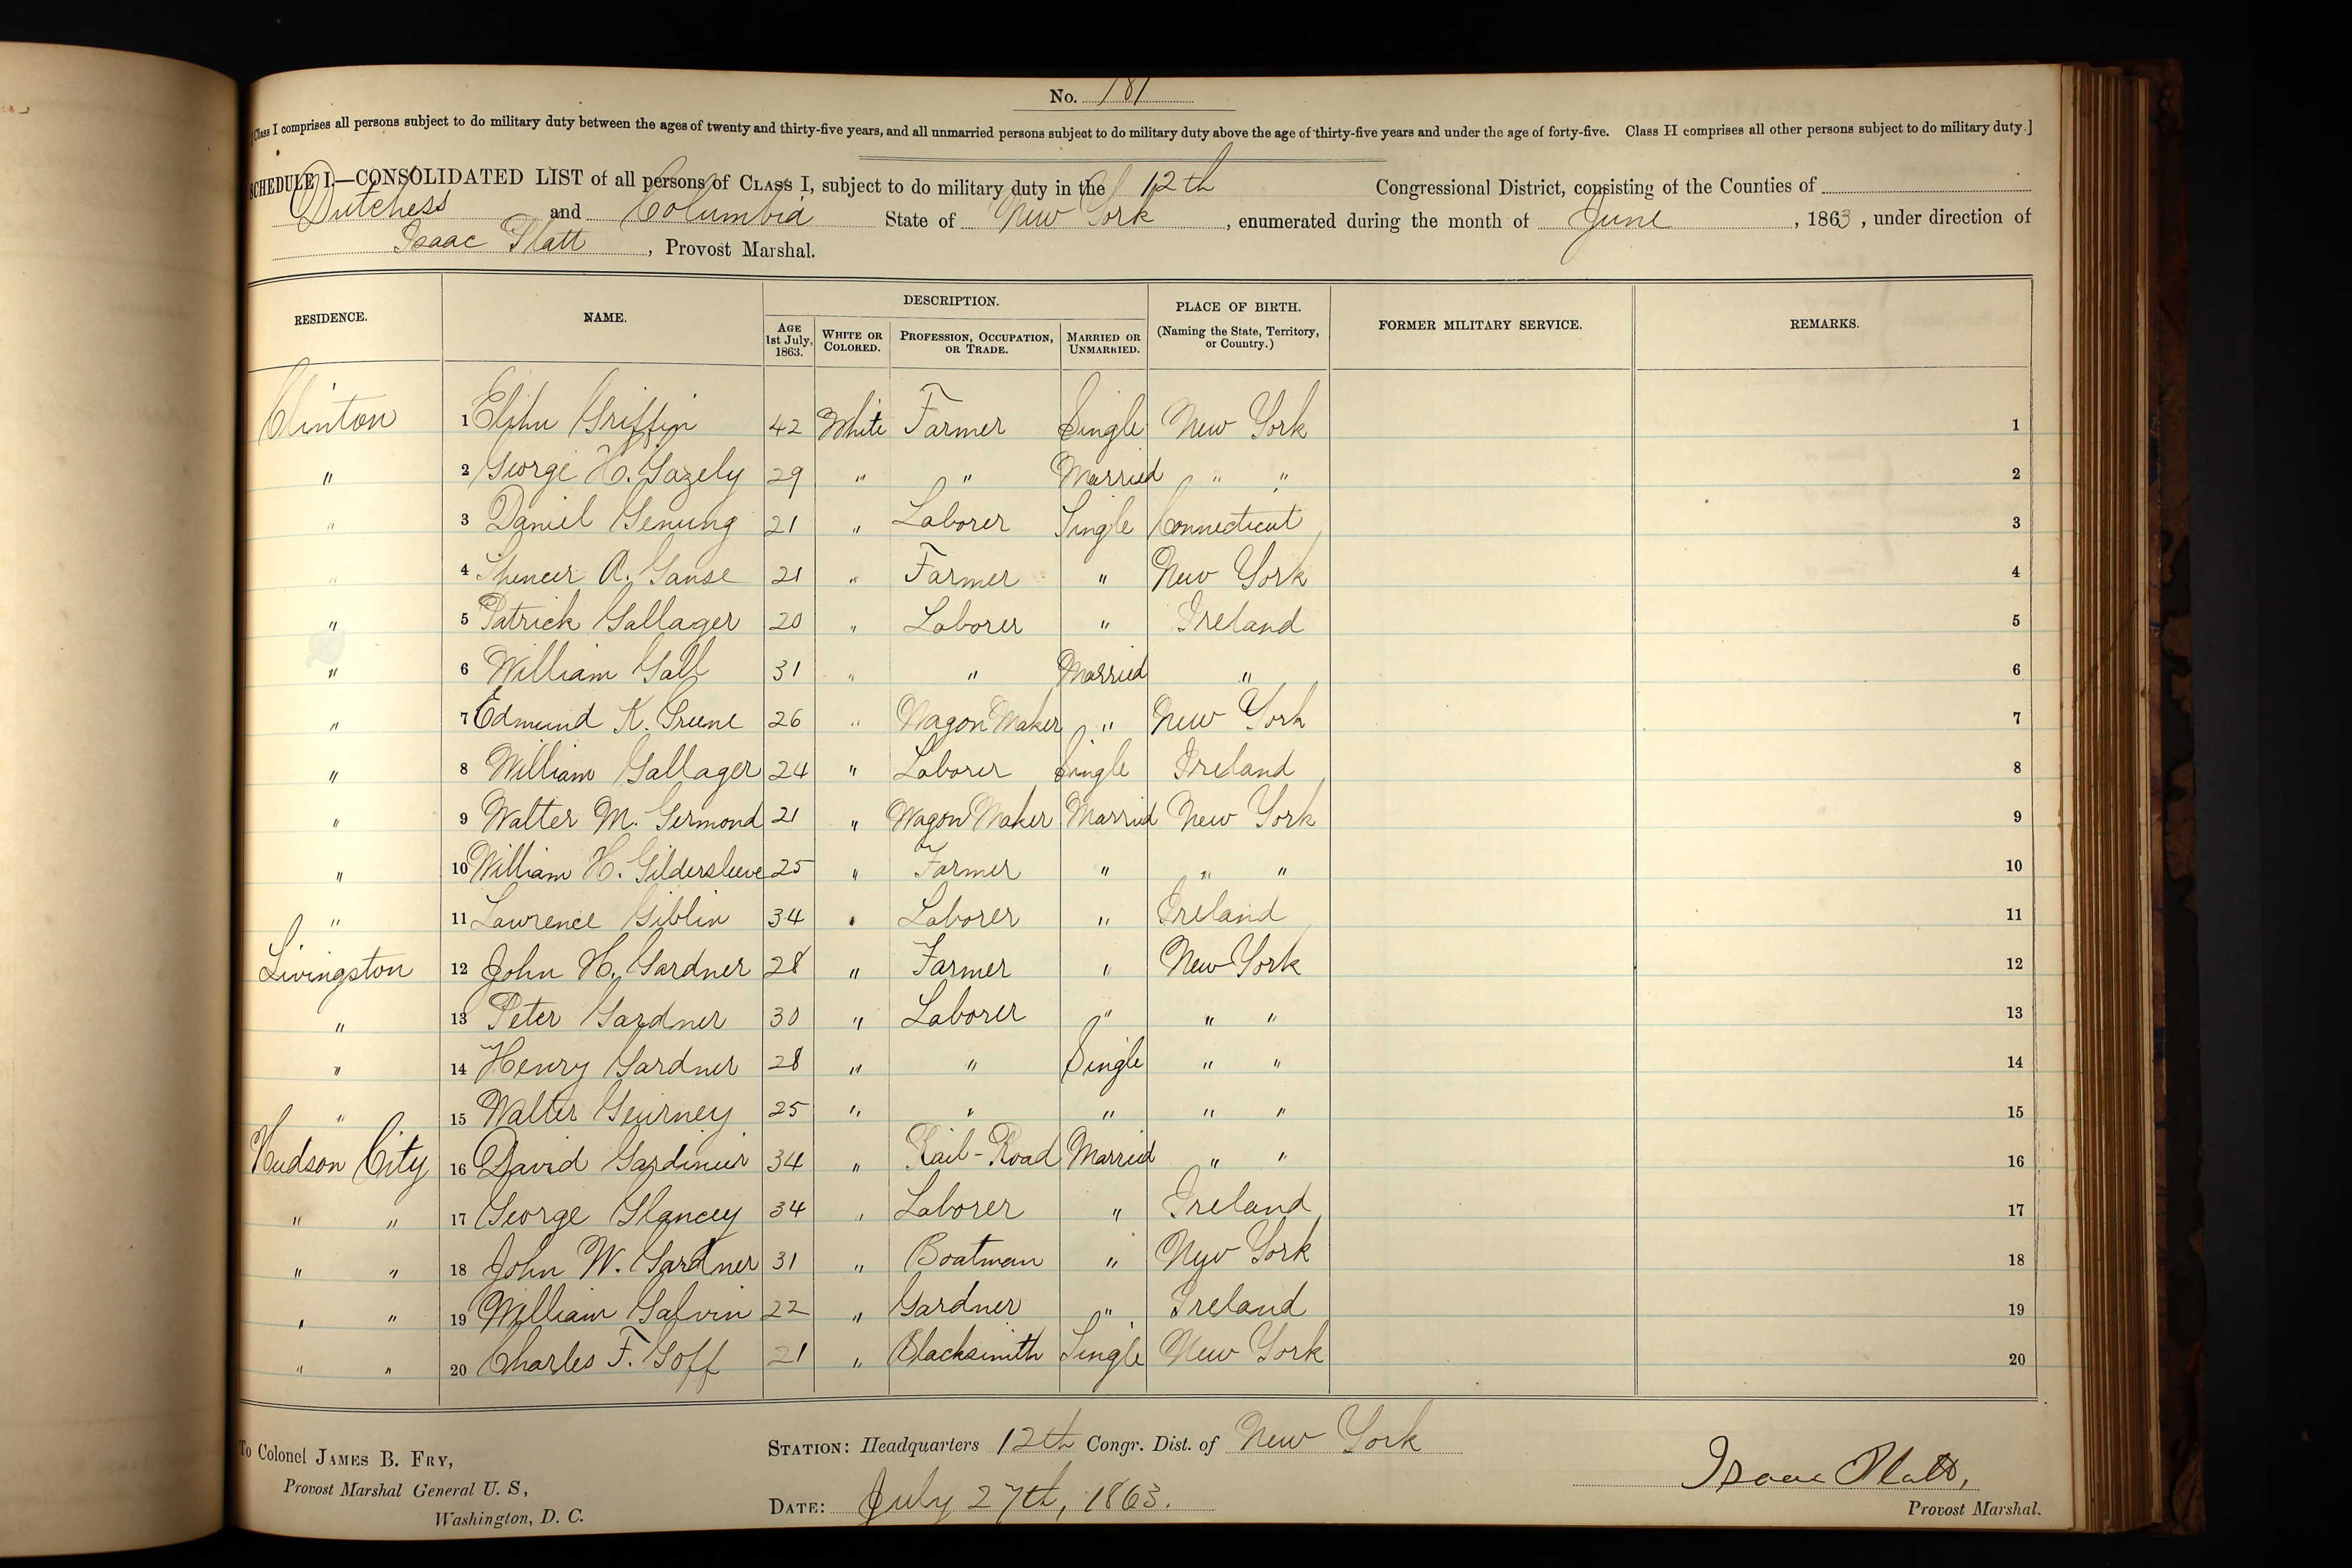 No. 181
[Class I comprises all persons subject to do military duty between the ages of twenty and thirty-five years, and all unmarried persons subject to do military duty above the age of thirty-five years and under the age of forty-five. Class II comprises all other persons subject to do military duty.]
SCHEDULE I.—CONSOLIDATED LIST of all persons of CLASS I, subject to do military duty in the 12th Congressional District, consisting of the Counties of
Dutchess and Columbia State of New York, enumerated during the month of June, 1863, under direction of
Isaac Platt, Provost Marshal.
RESIDENCE. NAME. DESCRIPTION. PLACE OF BIRTH. (Naming the State, Territory, or Country.) FORMER MILITARY SERVICE. REMARKS.
AGE 1st July, 1863. WHITE OR COLORED. PROFESSION, OCCUPATION, OR TRADE. MARRIED OR UNMARRIED.
Clinton 1 Elihu Griffin 42 White Farmer Single New York 1
" 2 George H. Gazely 29 " " Married " " 2
" 3 Daniel Genung 21 " Laborer Single Connecticut 3
" 4 Spencer A. Ganse 21 " Farmer " New York 4
" 5 Patrick Gallager 20 " Laborer " Ireland 5
" 6 William Gall 31 " " Married " 6
" 7 Edmund K. Greene 26 " Wagon Maker " New York 7
" 8 William Gallager 24 " Laborer Single Ireland 8
" 9 Walter M. Germond 21 " Wagon Maker Married New York 9
" 10 William H. Gildersleeve 25 " Farmer " " " 10
" 11 Lawrence Giblin 34 " Laborer " Ireland 11
Livingston 12 John H. Gardner 28 " Farmer " New York 12
" 13 Peter Gardner 30 " Laborer " " " 13
" 14 Henry Gardner 28 " " Single " " 14
" 15 Walter Geurney 25 " " " " " 15
Hudson City 16 David Gardinier 34 " Rail-Road Married " " 16
" " 17 George Glancey 34 " Laborer " Ireland 17
" " 18 John W. Gardner 31 " Boatman " New York 18
" " 19 William Galvin 22 " Gardner " Ireland 19
" " 20 Charles F. Goff 21 " Blacksmith Single New York 20
To Colonel JAMES B. FRY,
Provost Marshal General U. S,
Washington, D. C.
STATION: Headquarters 12th Congr. Dist. of New York
DATE: July 27th, 1863.
Isaac Platt,
Provost Marshal.